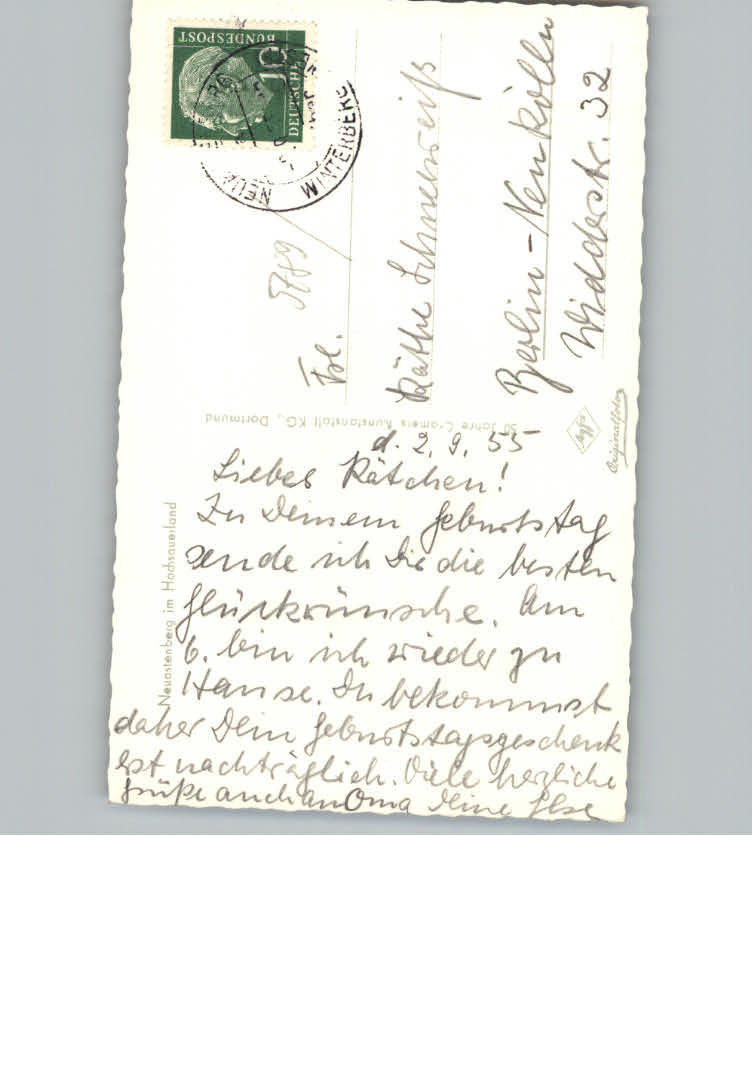 d. 2. 9. 55
Liebes Kätchen!
Zu Deinem Geburtstag
sende ich Dir die besten
Glückwünsche. Am
6. bin ich wieder zu
Hause. Du bekommst
daher Dein Geburtstagsgeschenk
erst nachträglich. Viele herzliche
Grüße auch an Oma Deine Ilse
Frl.
Käthe Schneeweiß
Berlin-Neukölln
Widderstr. 32
DEUTSCHE
BUNDESPOST
10
WINTERBERG
Neuastenberg im Hochsauerland
50 Jahre Cramers Kunstanstalt KG., Dortmund
Agfa
Originalfoto